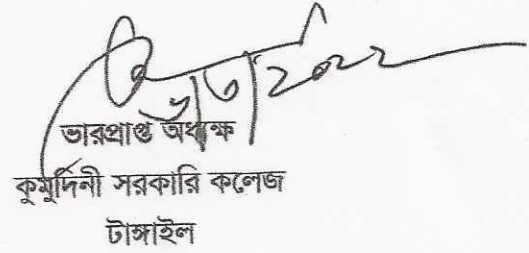 ভারপ্রাপ্ত অধ্যক্ষ
কুমুদিনী সরকারি কলেজ
টাঙ্গাইল